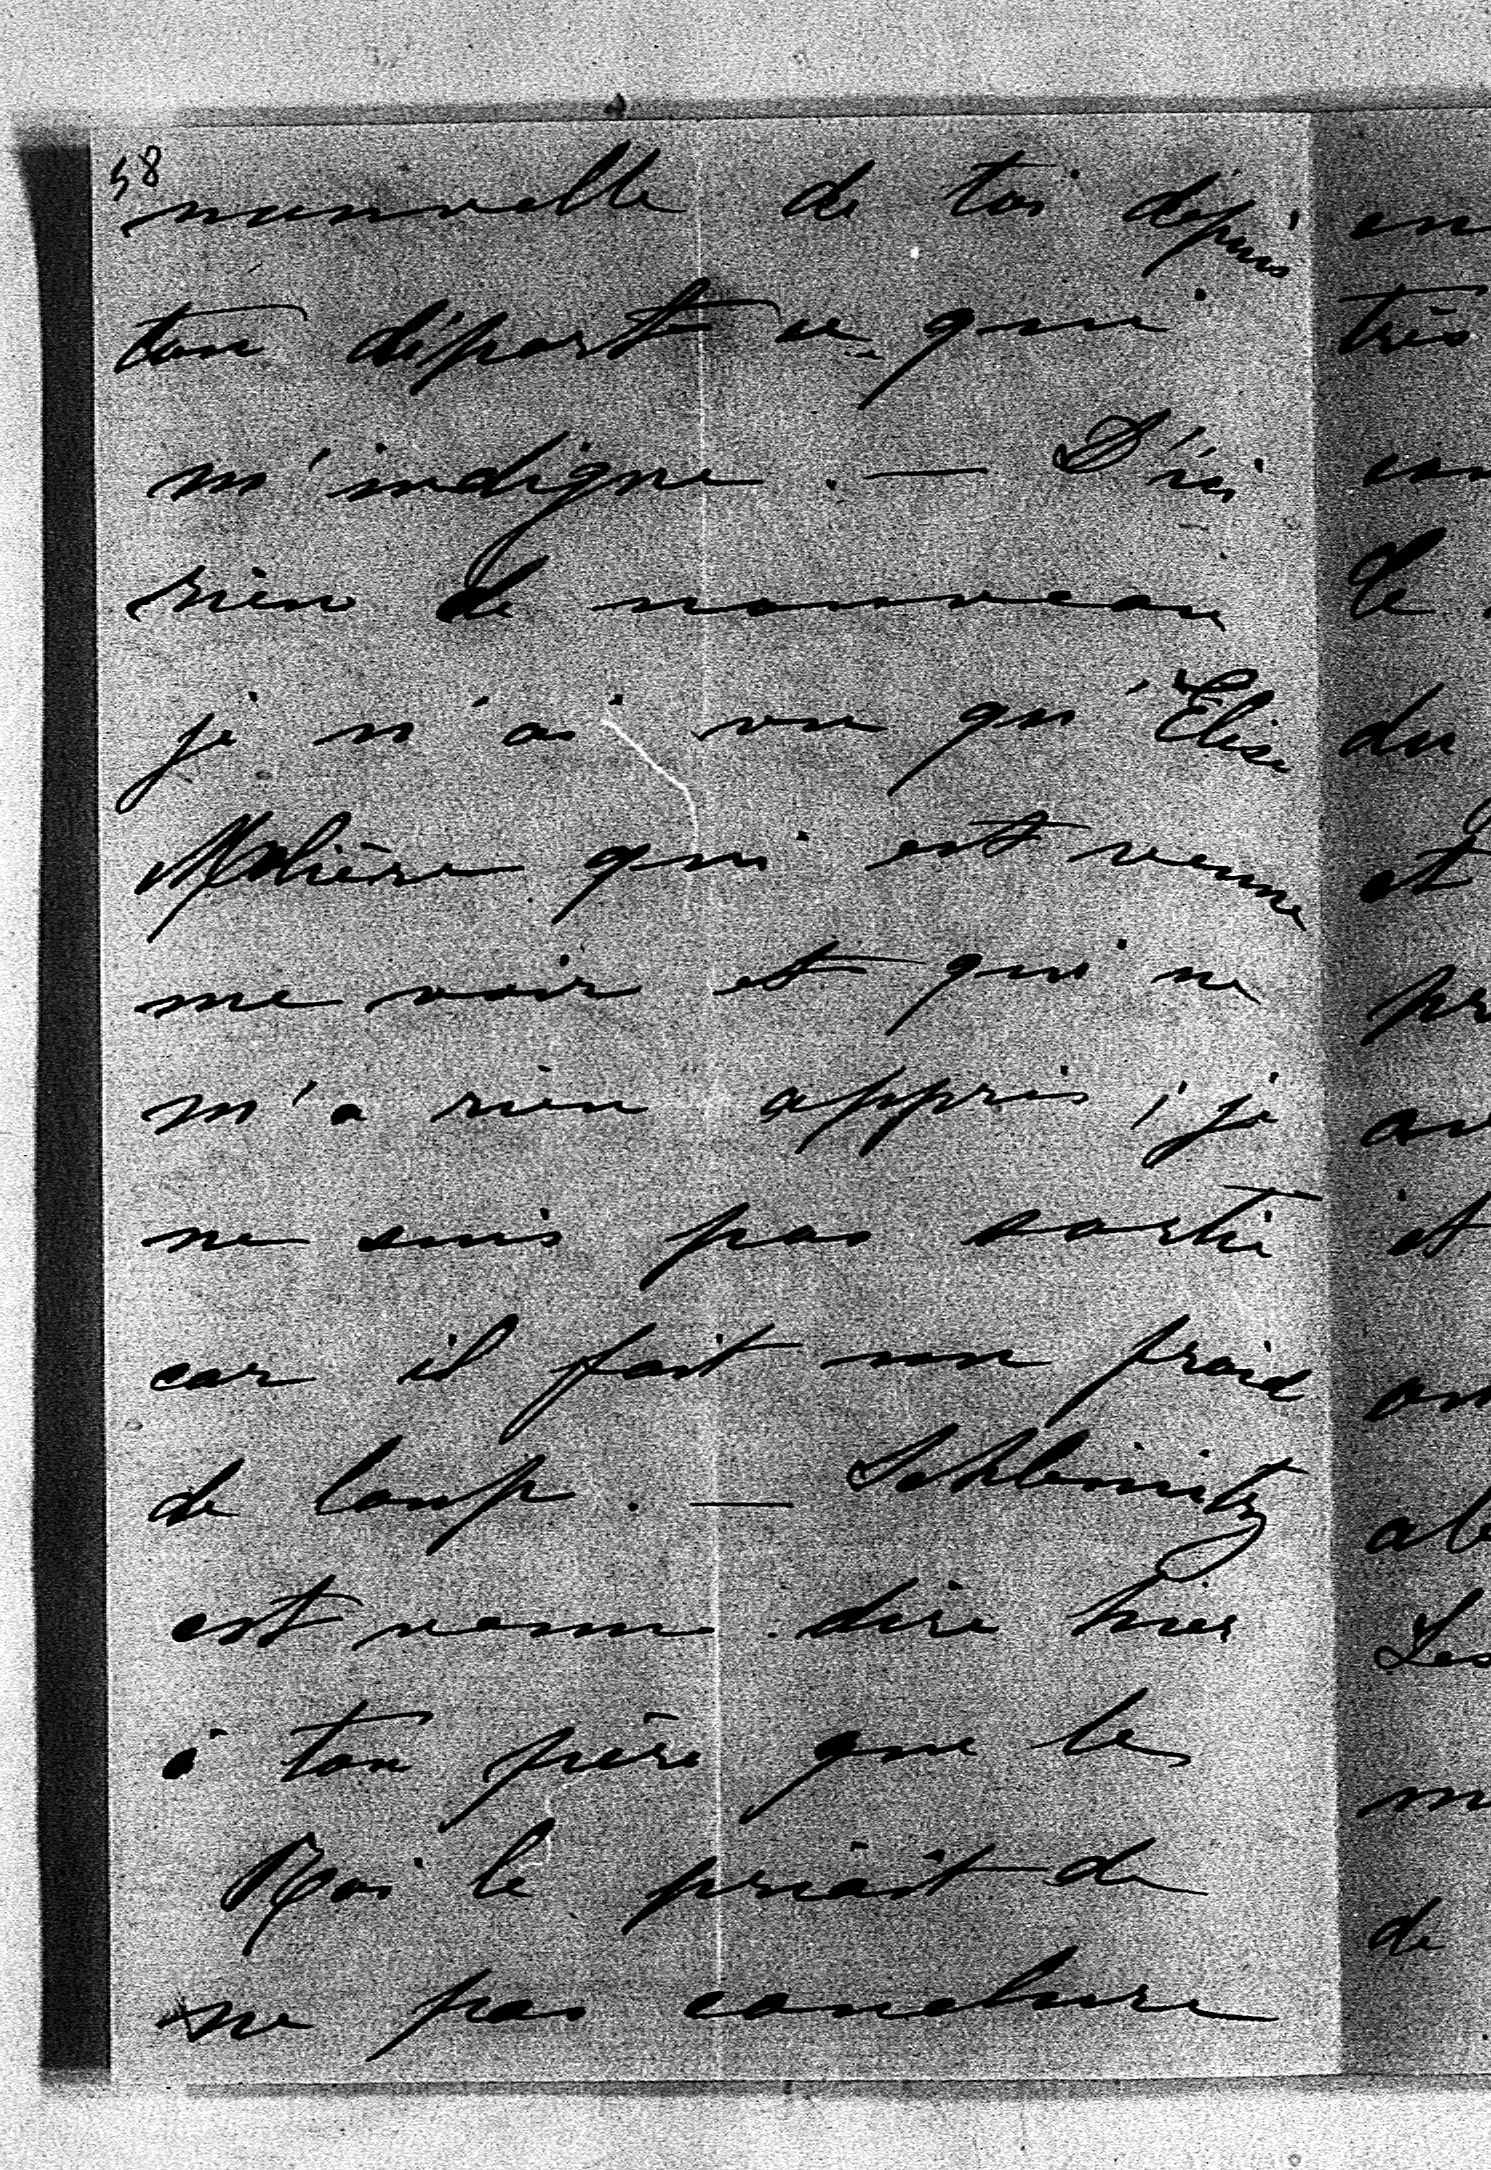 58
nouvelle de toi depuis
ton départ ce qui
m'indigne. — D'ici
rien de nouveau
je n'ai vu qu'Elise
qui est venue
me voir et qui ne
m'a rien appris, je
ne suis pas sortie
car il fait un froid
de loup. — Schleinitz
est venu dire hier
à ton père que le
Roi le priait de
ne pas conclure
en
très
le
du
et
de